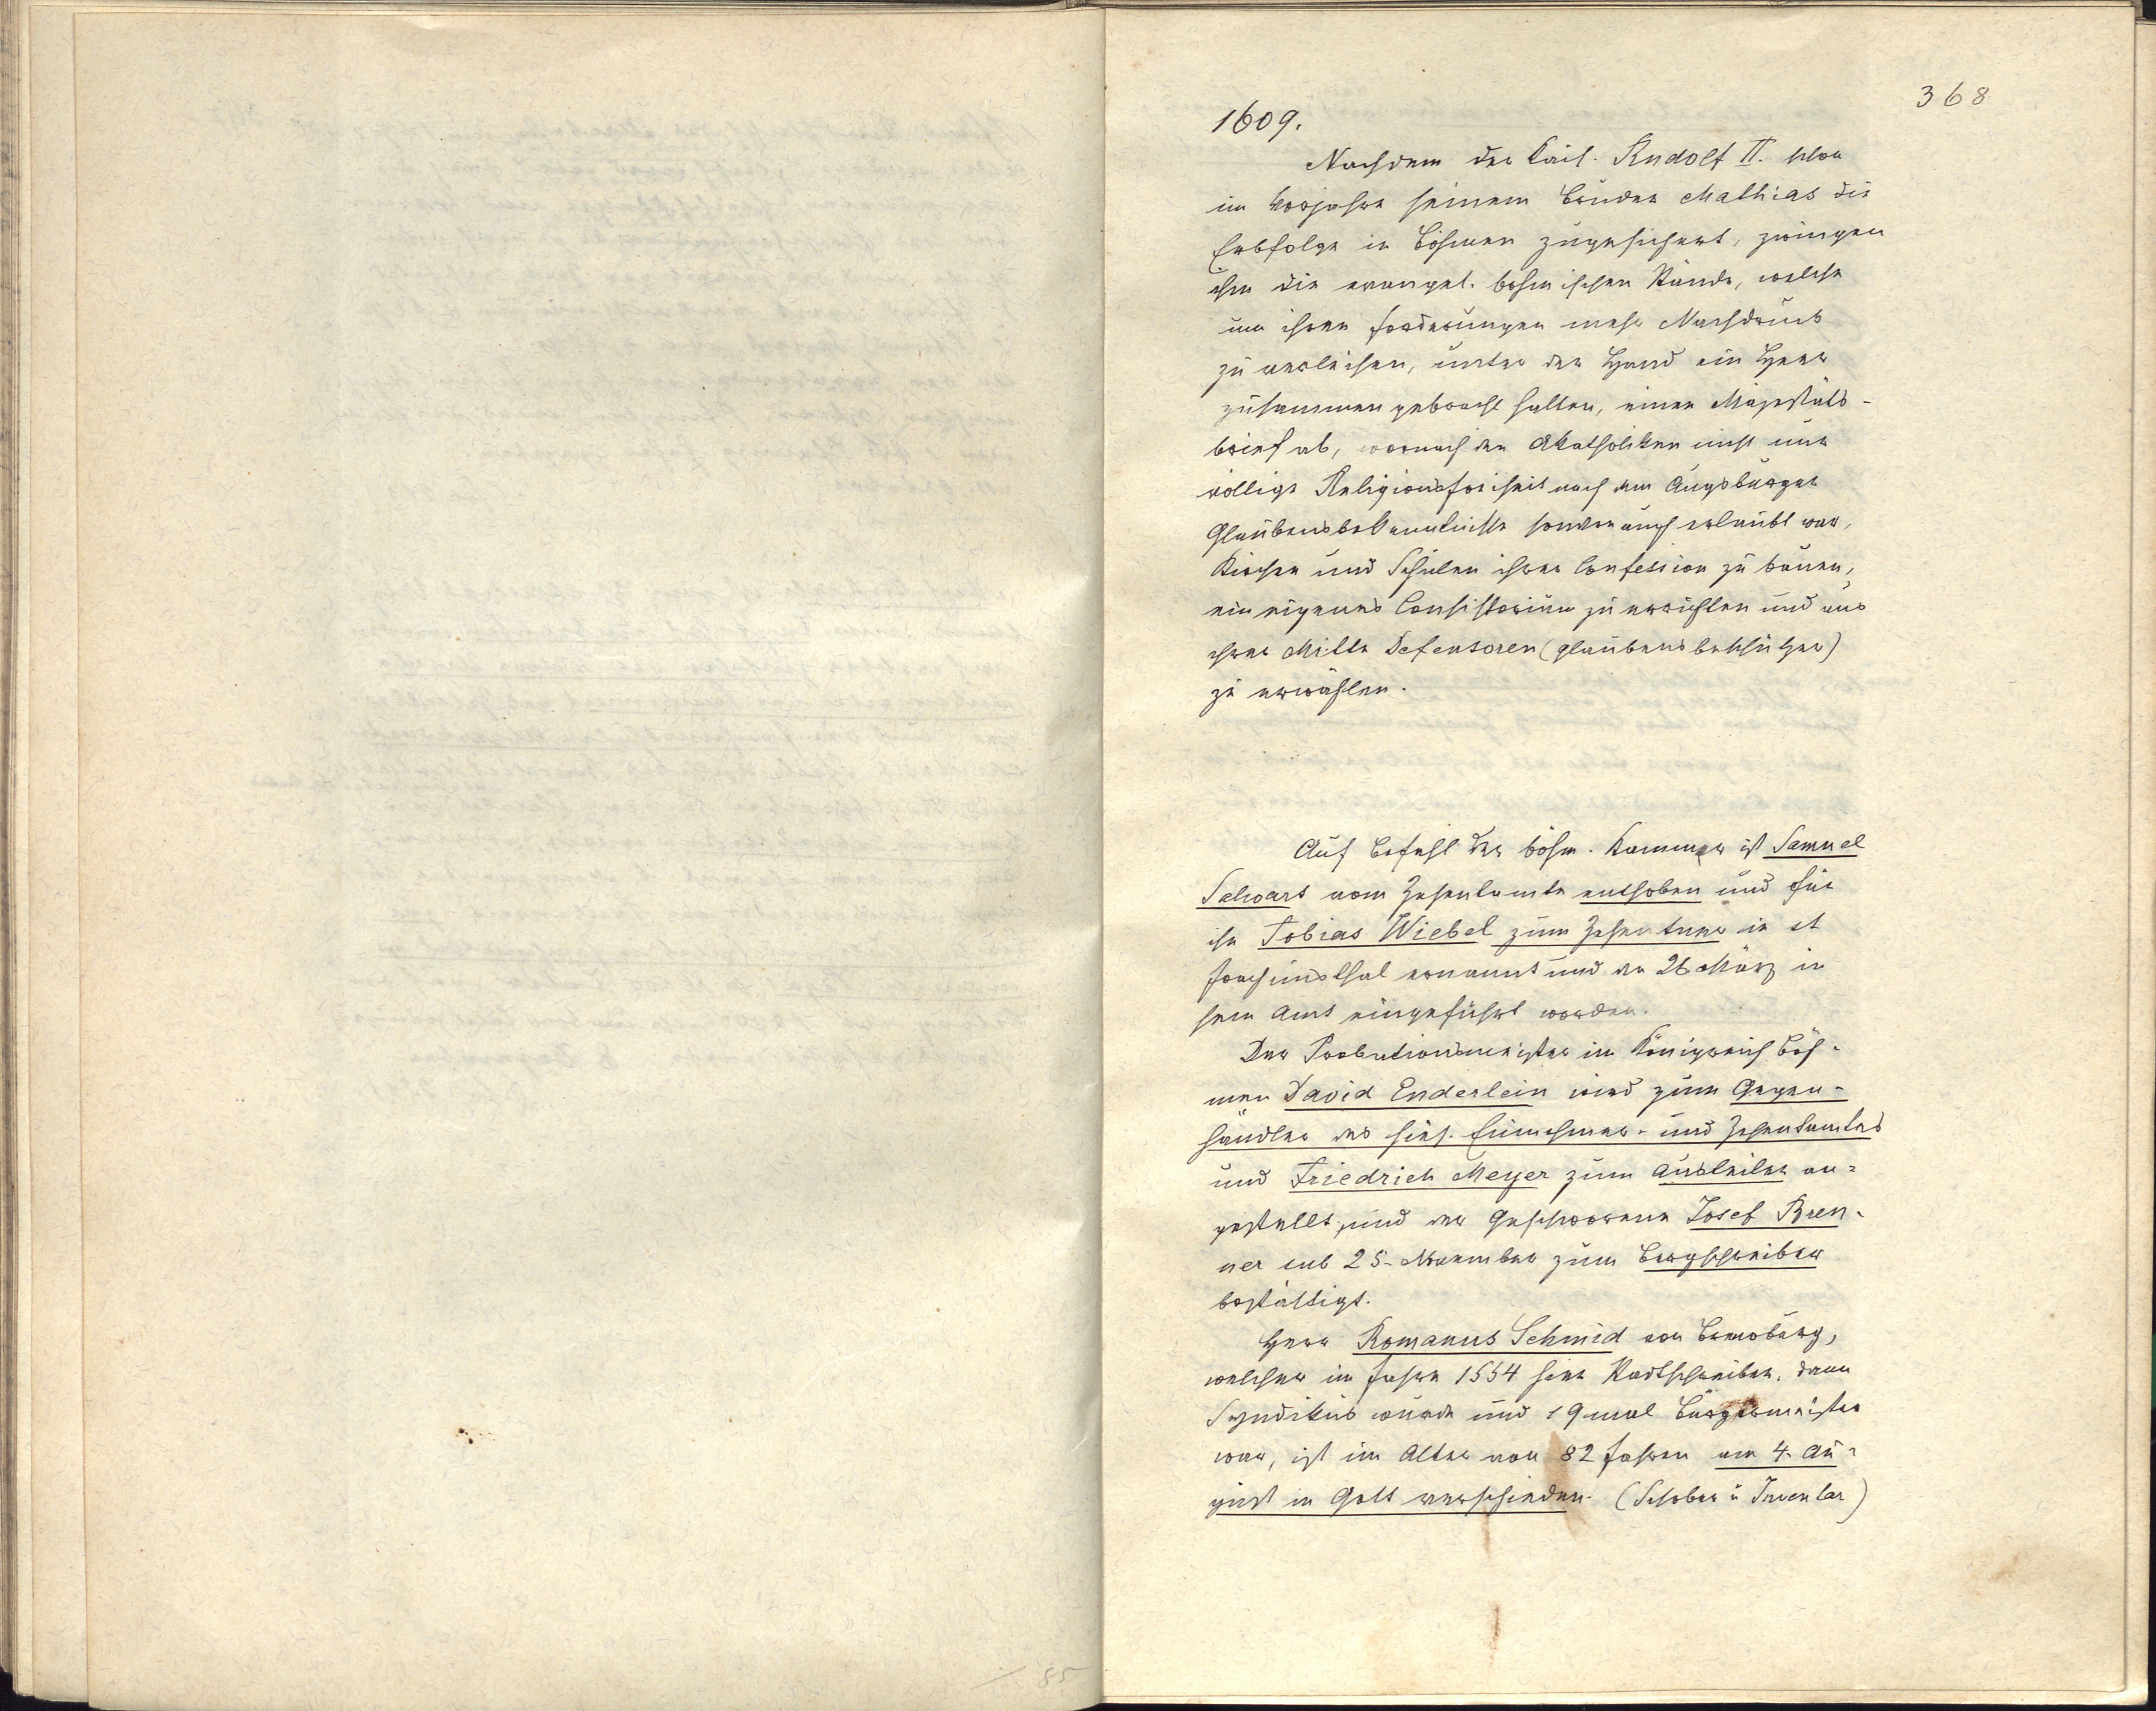 368
1609.
Nachdem der Kais. Rudolf II. schon
im Vorjahre seinem Bruder Mathias die
Erbfolge in Böhmen zugesichert, zwingen
ihn die evangel. böhmischen Stände, welche
um ihren Forderungen mehr Nachdruck
zu verleihen, unter der Hand ein Heer
zusammen gebracht hatten, einen Majestäts-
brief ab, wornach den Akatholiken nicht nur
völlige Religionsfreiheit nach dem Augsburger
Glaubensbekenntnisse sondern auch erlaubt war,
Kirchen und Schulen ihrer Confession zu bauen,
ein eigenes Consistorium zu errichten und aus
ihrer Mitte Defensoren (Glaubensbeschützer)
zu erwählen.
Auf Befehl der böhm. Kammer ist Samuel
Salwart vom Zehentamte enthoben und für
ihn Tobias Wiebel zum Zehentner in St
Joachimsthal ernannt und den 26 März in
sein Amt eingeführt worden.
Der Probationsmeister im Königreich Böh-
men David Enderlein wird zum Gegen-
händler des hies. Einnehmer- und Zehentamtes
und Friedrich Meyer zum Austeiler an-
gestellt, und der Geschworene Josef Bren-
ner sub 25. November zum Bergschreiber
bestättigt.
Herr Romanus Schmid von
welcher im Jahre 1554 hier Stadtschreiber, dann
Syndikus wurde und 19 mal Bürgermeister
war, ist im Alter von 82 Jahren am 4. Au-
gust in Gott verschieden. (Schober u Inventar)
85